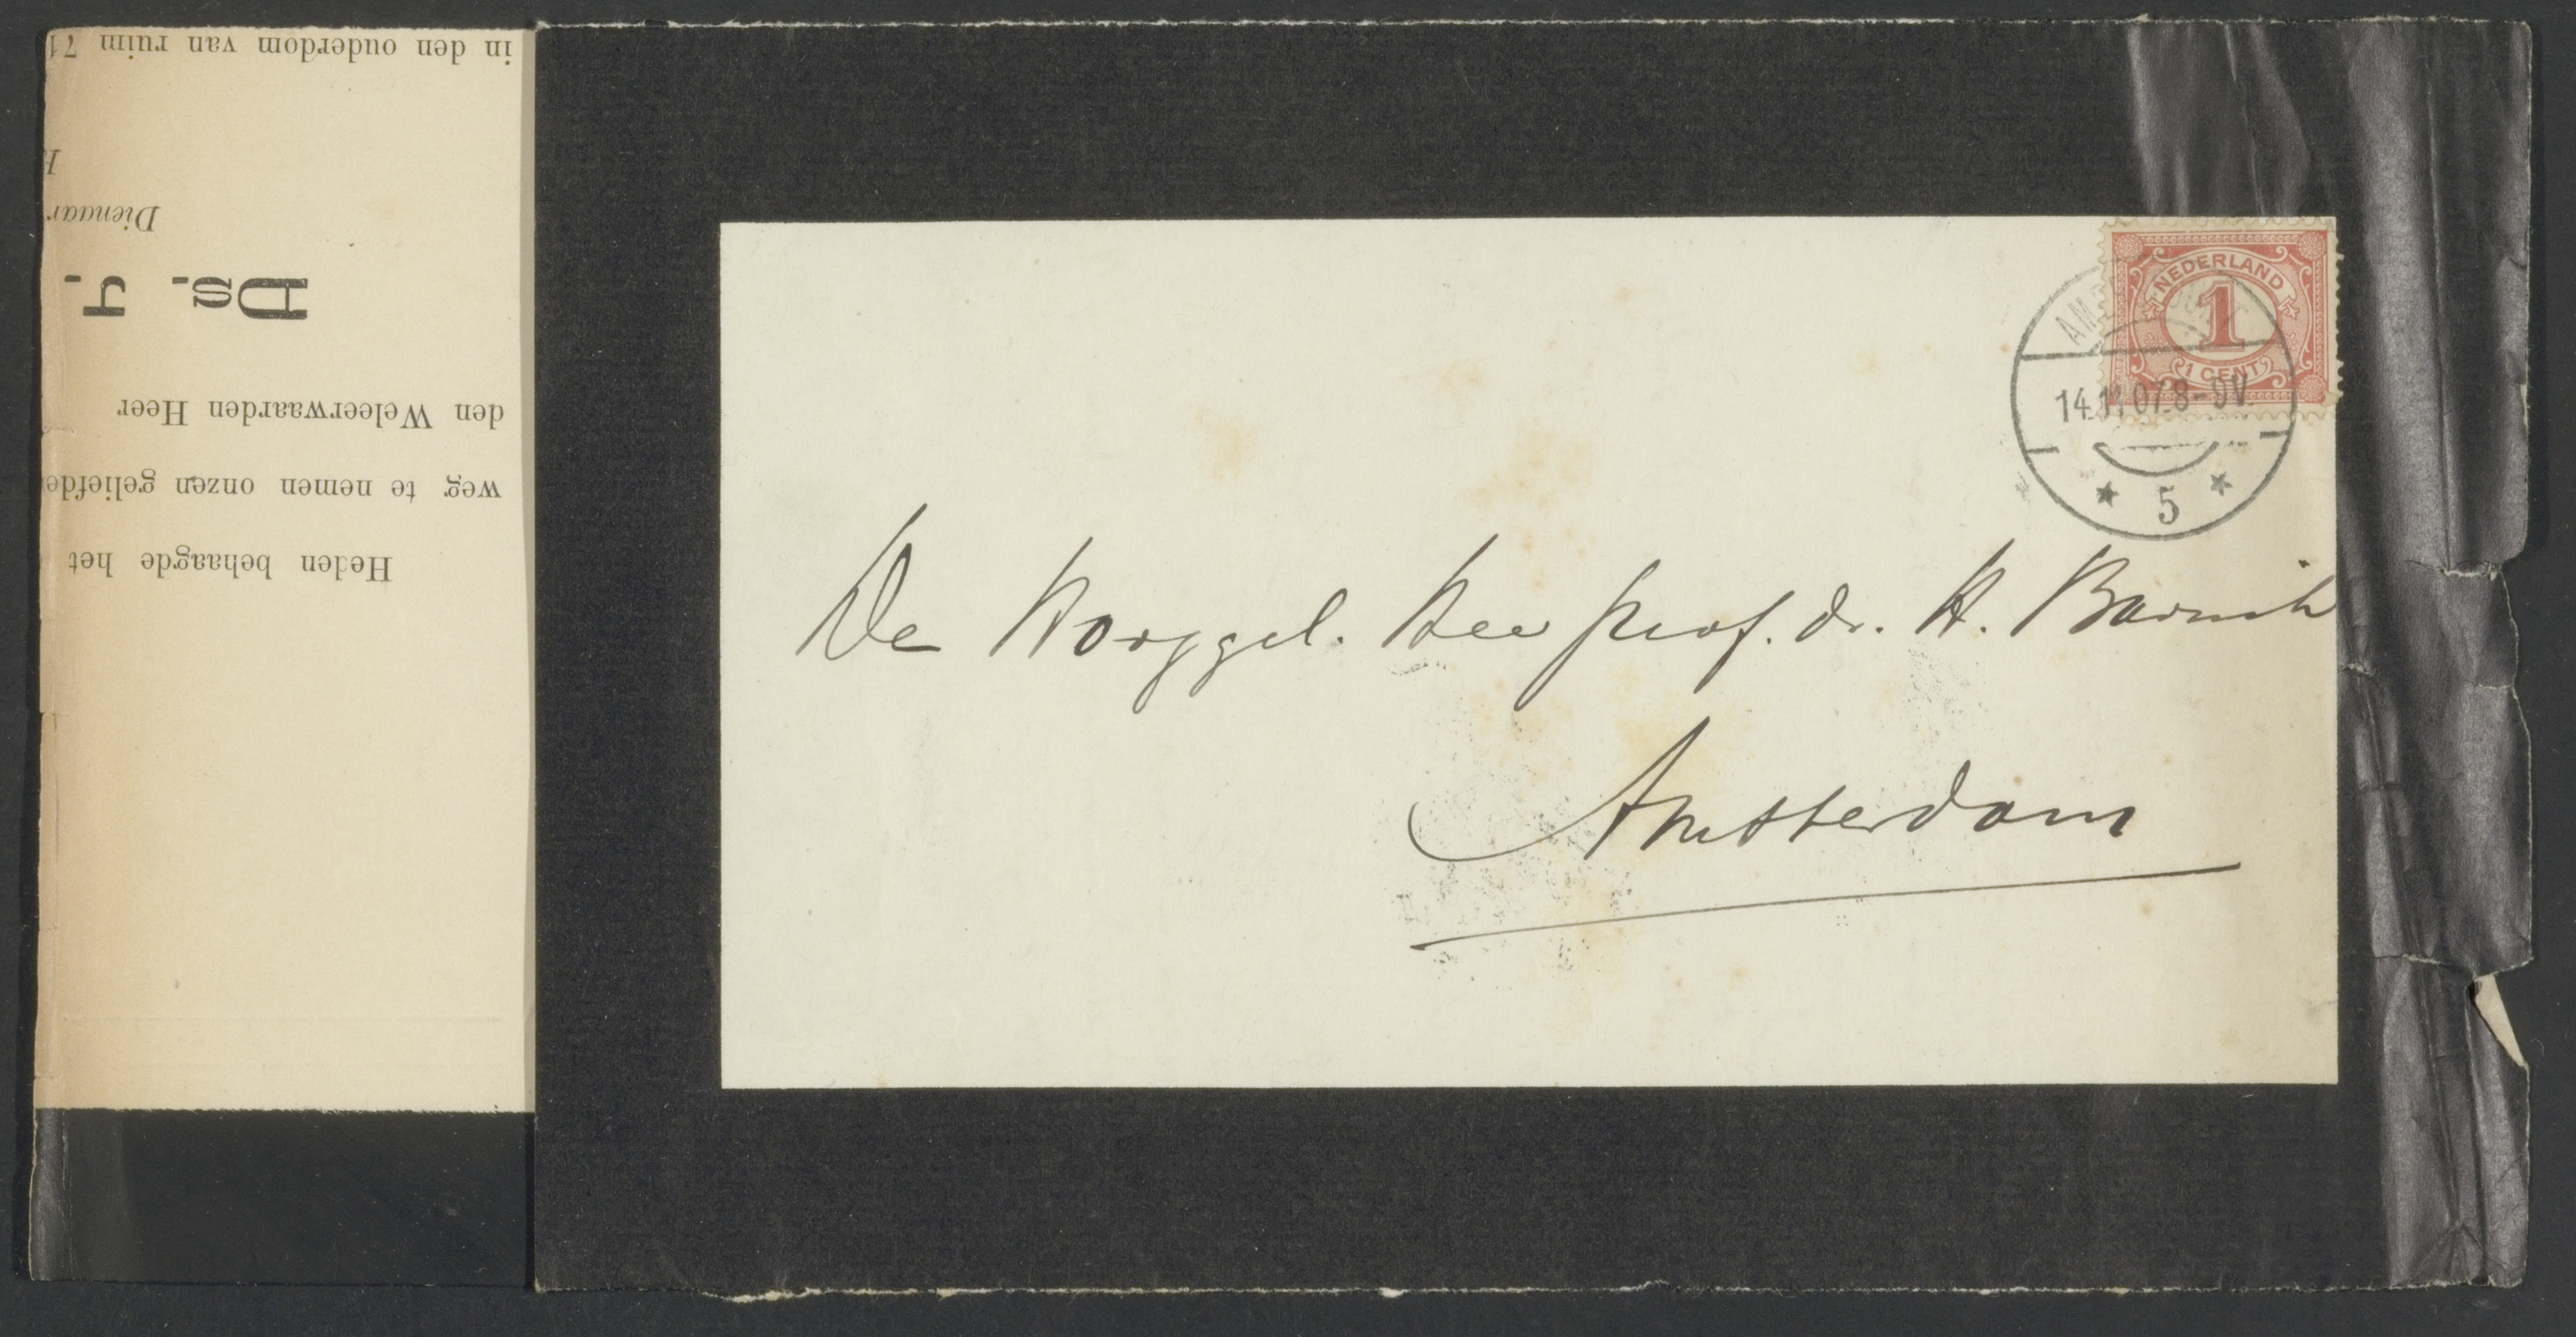 Heden behaagde het
weg te nemen onzen geliefde
den Weleerwaarden Heer
Ds. J.
Dienaar
in den ouderdom van ruim 71
NEDERLAND
1
1 CENT
14.11.07.8-9V.
* 5 *
De Hooggel. Heer prof. dr. H. Bavinck
Amsterdam